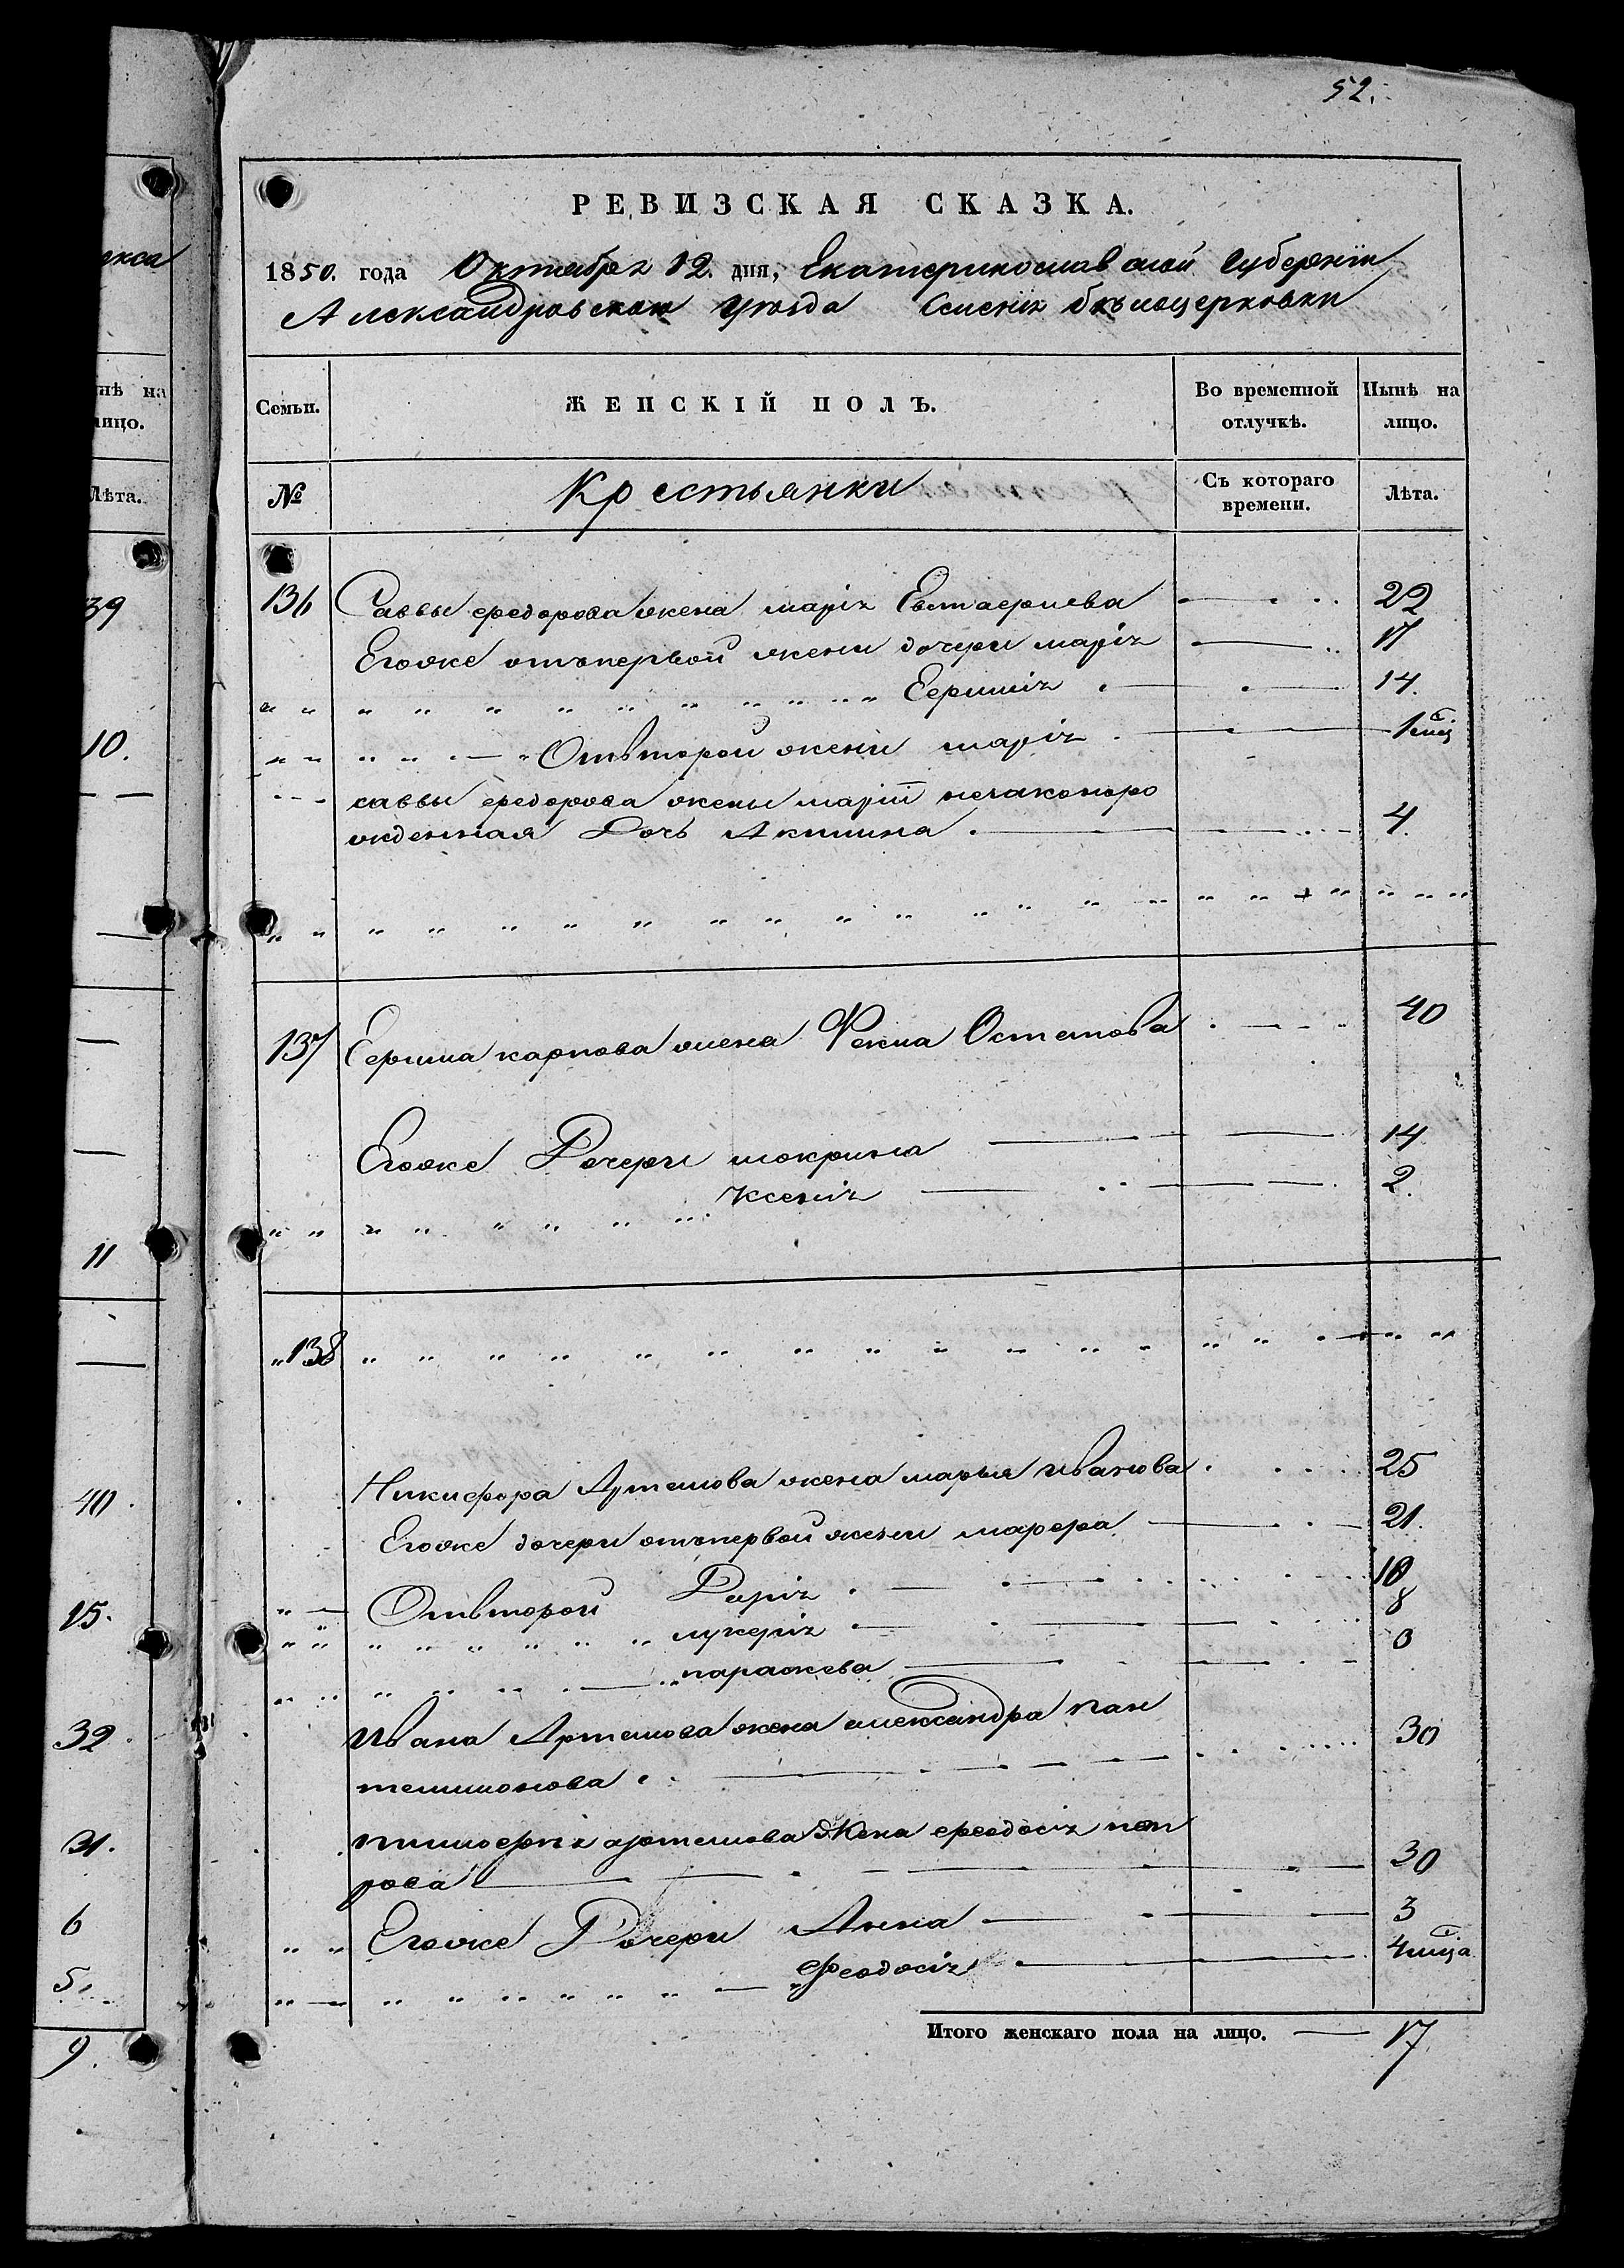 52.
РЕВИЗСКАЯ СКАЗКА.
1850. года Октября 12. дня, Екатеринославской Губерніи
Александровскаго Уѣзда Селенія Бѣлоцерковки
Семьи. ЖЕНСКІЙ ПОЛЪ. Во временной отлучкѣ. Нынѣ на лицо.
№ Крестьянки Съ котораго времени. Лѣта.
136 Саввы федорова жена марія Евстафиева 22
Егоже отъ первой жены дочери марія 17
Ефимія 14.
Отвторой жены марія 1 мѣс
саввы федорова жены маріи незаконоро
жденная Дочь Акилина 4.
137 Ефима карпова жена Фекла Остапова 40
Егоже Дочери мокрина 14
Ксенія 2.
138
Никифора Артемова жена марья иванова 25
Егоже дочери отъ первой жены марфа 21.
Отвторой Дарія 10
лукерія 8
парасковея
Ивана Артемова жена александра пан
телимонова 30
тимофея артемова Жена феодосія пет
рова 30
Егоже Дочери Анна 3
Феодосія 4 мѣца
Итого женскаго пола на лицо. 17.
екса
нѣ на
лицо.
Лѣта.
39
10.
11
40.
15.
32.
31.
6
5.
9.